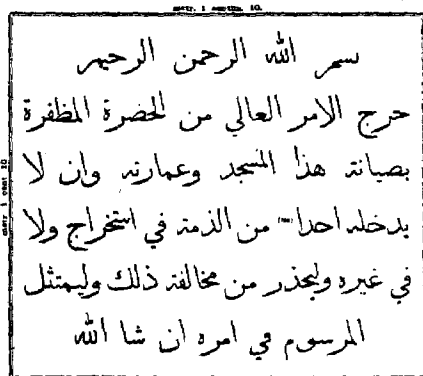 metr. 1 centim. 10.
بسم الله الرحمن الرحيم
خرج الامر العالي من الحضرة المظفرة
بصيانة هذا المسجد وعمارته وان لا
يدخله احدا من الذمة في استخراج ولا
في غيره وليحذر من مخالفة ذلك وليمتثل
المرسوم في امره ان شا الله
metr. 1 cent. 10